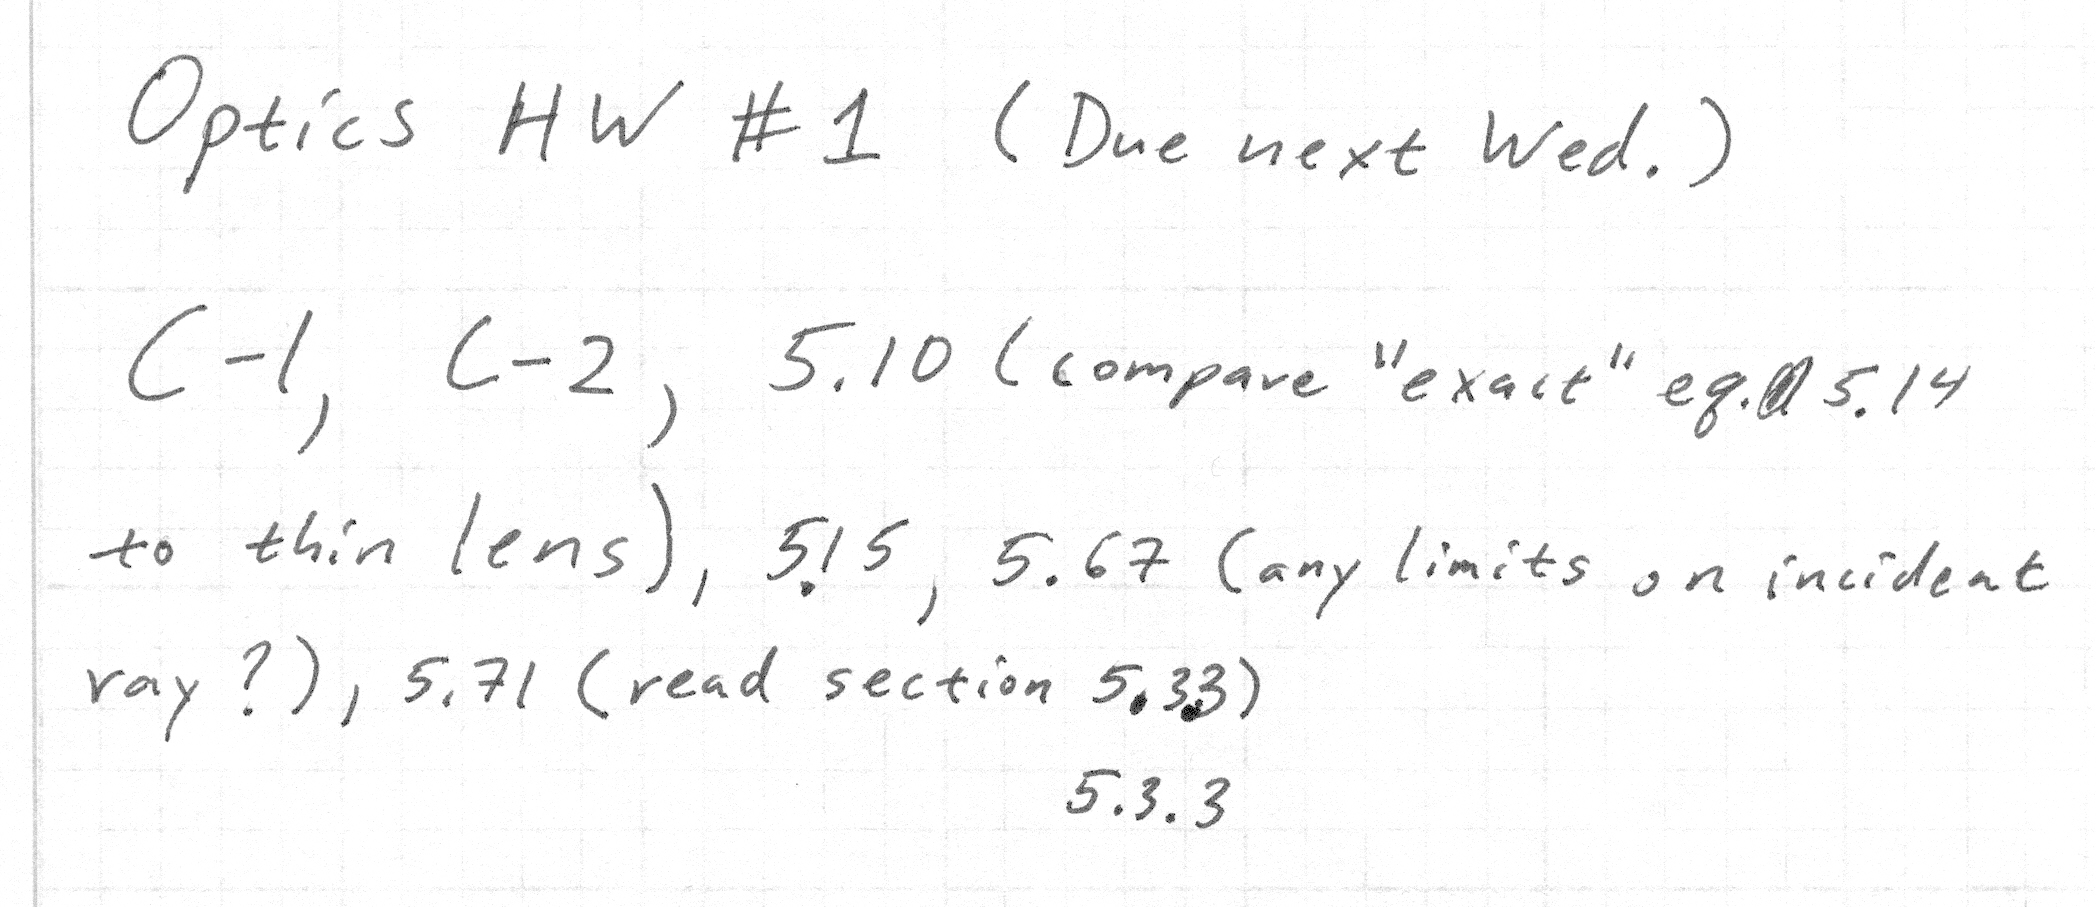 Optics HW #1 (Due next Wed.)
C-1, C-2, 5.10 (compare "exact" eq. 5.14
to thin lens), 5.15, 5.67 (any limits on incident
ray?), 5.71 (read section 5.3.3)
5.3.3